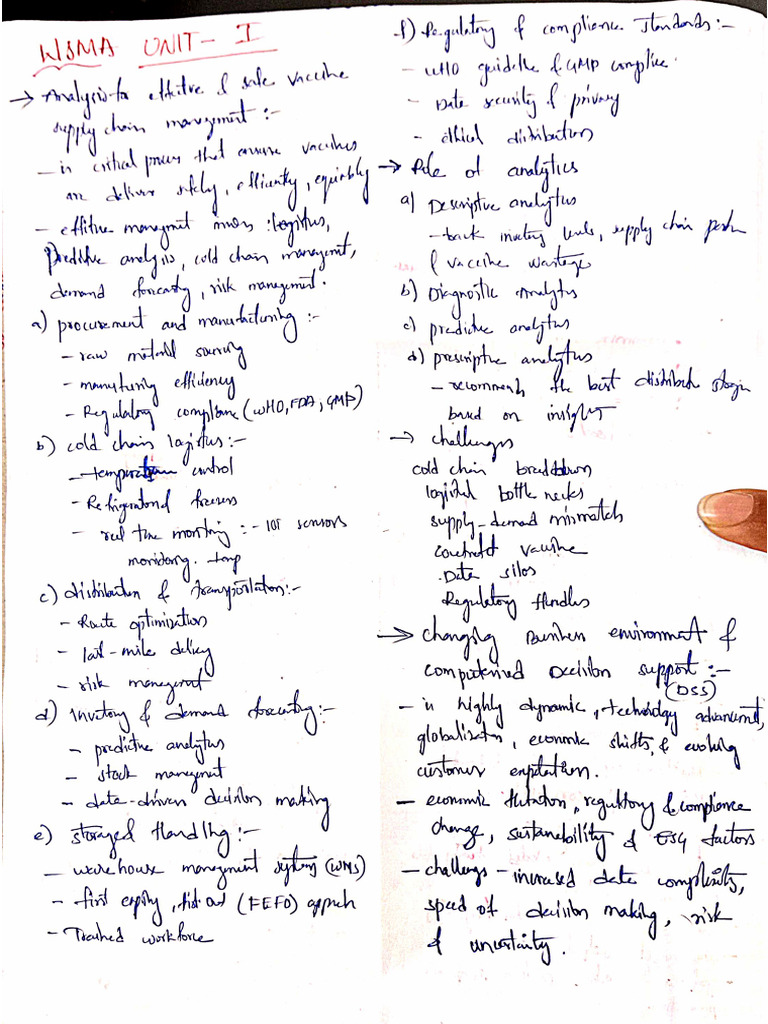 WSMA UNIT - I
→ Analysis for effective & safe vaccine
supply chain management :-
- is critical process that ensure vaccines
are deliver safely, efficiently, equitably
- effitive managment invovs : logistics,
Predictive analysis, cold chain management,
demand forecasting, risk management.
a) procurement and manufacturing :-
- raw material sourcing
- manufturing efficiency
- Regulatory complience (WHO, FDA, GMP)
b) cold chain logistics :-
- temperature control
- Refrigerator freezers
- real time monitring :- IOT sensors
monitoring temp
c) Distribution & Transportation :-
- Route optimization
- last-mile delivey
- risk management
d) Inventory & demand forecasting :-
- predictive analytics
- stock management
- data-driven decision making
e) Storage & Handling :-
- warehouse management systems (WMS)
- first expiry, first out (FEFO) approach
- Trained workforce
f) Regulatory & compliance standards :-
- WHO guideline & GMP complice.
- Data security & privacy
- ethical distribution
→ Role of analytics
a) Descriptive analytics
- track inventory levels, supply chain
& vaccine wastage
b) Diagnostic Analytics
c) predictive analytics
d) prescriptive analytics
- recommends the best distribution
based on insights
→ challenges
cold chain breakdowns
logistical bottle necks
supply-demand mismatch
vaccine
Data silos
Regulatory Hurdles
→ changing Business environment &
computerized Decision support :-
(DSS)
- is highly dynamic, technology advancement,
globalization, economic shifts, & evolving
customer expectation.
- economic fluctuation, regulatory & compliance
change, sustainability & ESG factors
- challenges - increased data complexity,
speed of decision making, risk
& uncertainity.